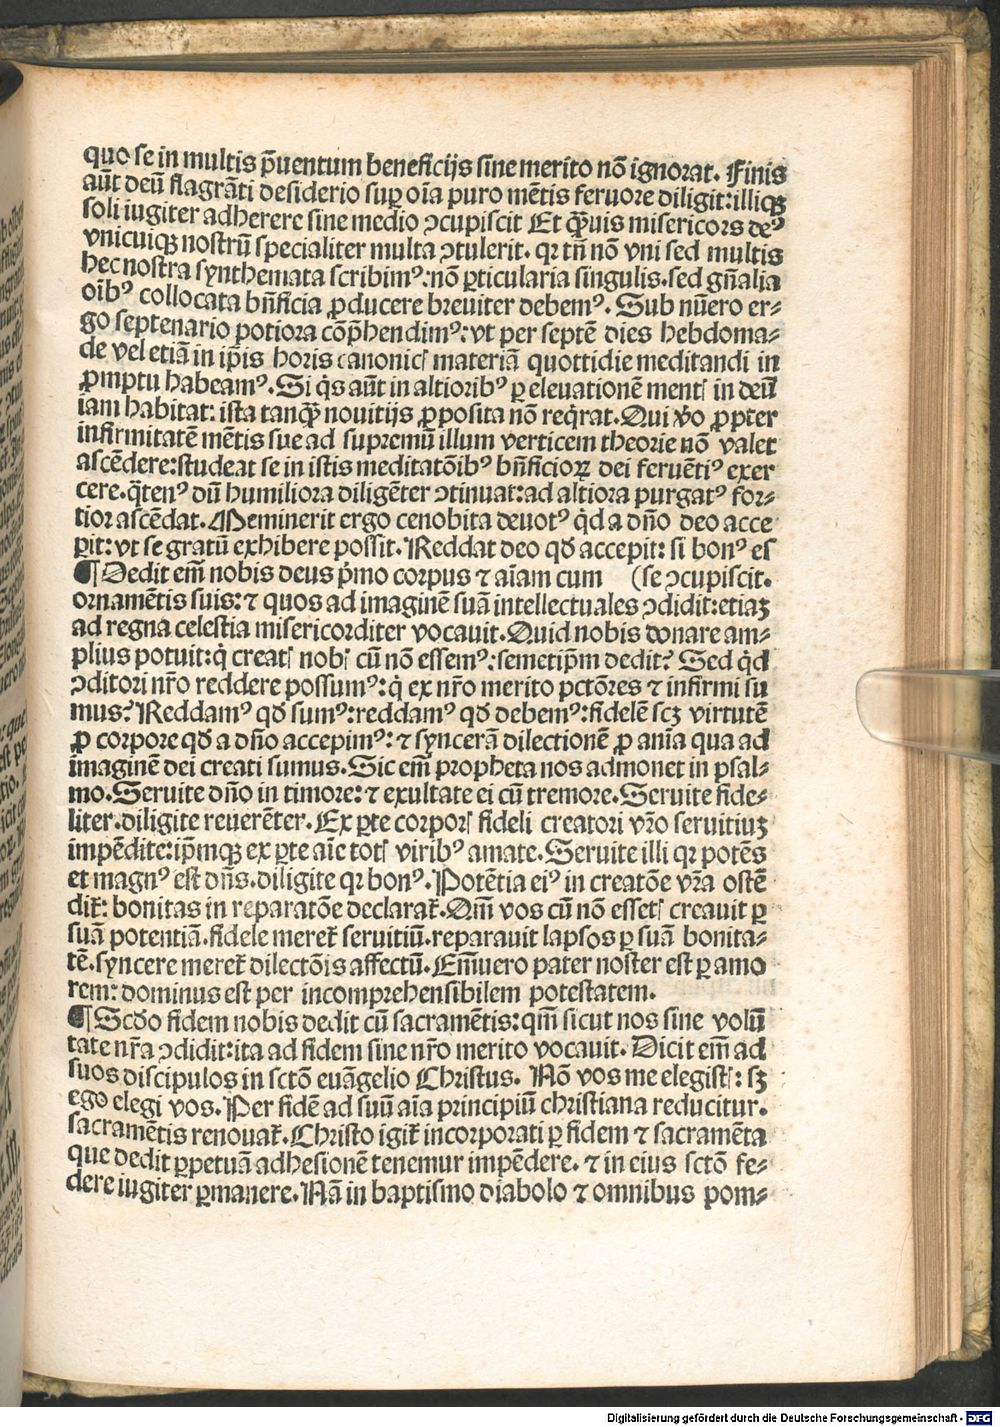 quo se in multis p̄uentum beneficijs sine merito nō ignorat. Finis
aūt deū flagrāti desiderio suꝑ oīa puro mētis feruore diligit: illiqꝫ
soli iugiter adherere sine medio ↄcupiscit Et q̄uis misericors deꝰ
vnicuiqꝫ nostrū specialiter multa ↄtulerit. qꝛ tn̄ nō vni sed multis
hec nostra synthemata scribimꝰ: nō ꝑticularia singulis. sed gn̄alia
oībꝰ collocata bn̄ficia ꝓducere breuiter debemꝰ. Sub nūero er⸗
go septenario potiora cōp̄hendimꝰ: vt per septē dies hebdoma⸗
de vel etiā in ip̄is horis canonicꝭ materiā quottidie meditandi in
ꝓmptu habeamꝰ. Si q̇s aūt in altioribꝰ ꝑ eleuationē mentꝭ in deū
iam habitat: ista tanq̄ nouitijs ꝓposita nō req̇rat. Qui v̓o ꝓpter
infirmitatē mētis sue ad supremū illum verticem theorie nō valet
ascēdere: studeat se in istis meditatōibꝰ bn̄ficioꝝ dei feruētiꝰ exer
cere. q̄tenꝰ dū humiliora diligēter ↄtinuat: ad altiora purgatꝰ for⸗
tior ascēdat. Meminerit ergo cenobita deuotꝰ q̇d a dn̄o deo acce
ꝑit: vt se gratū exhibere possit. Reddat deo qd̓ accepit: si bonꝰ es
¶ Dedit em̄ nobis deus p̄mo corpus ⁊ aīam cum (se ↄcupiscit.
ornamētis suis: ⁊ quos ad imaginē suā intellectuales ↄdidit: etiaꝫ
ad regna celestia misericorditer vocauit. Quid nobis donare am⸗
plius potuit: q̇ creatꝭ nobꝭ cū nō essemꝰ: semetip̄m dedit? Sed q̇d
ↄditori nr̄o reddere possumꝰ: q̇ ex nr̄o merito pctōres ⁊ infirmi su
mus? Reddamꝰ qd̓ sumꝰ: reddamꝰ qd̓ debemꝰ: fidelē scꝫ virtutē
ꝓ corpore qd̓ a dn̄o accepimꝰ: ⁊ syncerā dilectionē ꝓ anīa qua ad
imaginē dei creati sumus. Sic em̄ propheta nos admonet in psal⸗
mo. Seruite dn̄o in timore: ⁊ exultate ei cū tremore. Seruite fide⸗
liter. diligite reuerēter. Ex ꝑte corporꝭ fideli creatori vr̄o seruitiuꝫ
impēdite: ip̄mqꝫ ex ꝑte aīe totꝭ viribꝰ amate. Seruite illi qꝛ potēs
et magnꝰ est dn̄s. diligite qꝛ bonꝰ. Potētia eiꝰ in creatōe vr̄a ostē
dit᷑: bonitas in reparatōe declarat᷑. Qm̄ vos cū nō essetꝭ creauit ꝑ
suā potentiā. fidele meret᷑ seruitiū. reparauit lapsos ꝑ suā bonita⸗
tē. syncere meret᷑ dilectōis affectū. Em̄uero pater noster est ꝑ amo
rem: dominus est per incomprehensibilem potestatem.
¶ Scd̓o fidem nobis dedit cū sacramētis: qm̄ sicut nos sine volū
tate nr̄a ↄdidit: ita ad fidem sine nr̄o merito vocauit. Dicit em̄ ad
suos discipulos in sctō euāgelio Christus. Nō vos me elegistꝭ: sꝫ
ego elegi vos. Per fidē ad suū aīa principiū christiana reducitur.
sacramētis renouat᷑. Christo igit᷑ incorporati ꝑ fidem ⁊ sacramēta
que dedit ꝑpetuā adhesionē tenemur impēdere. ⁊ in eius sctō fe⸗
dere iugiter ꝑmanere. Nā in baptismo diabolo ⁊ omnibus pom⸗
Digitalisierung gefördert durch die Deutsche Forschungsgemeinschaft - DFG